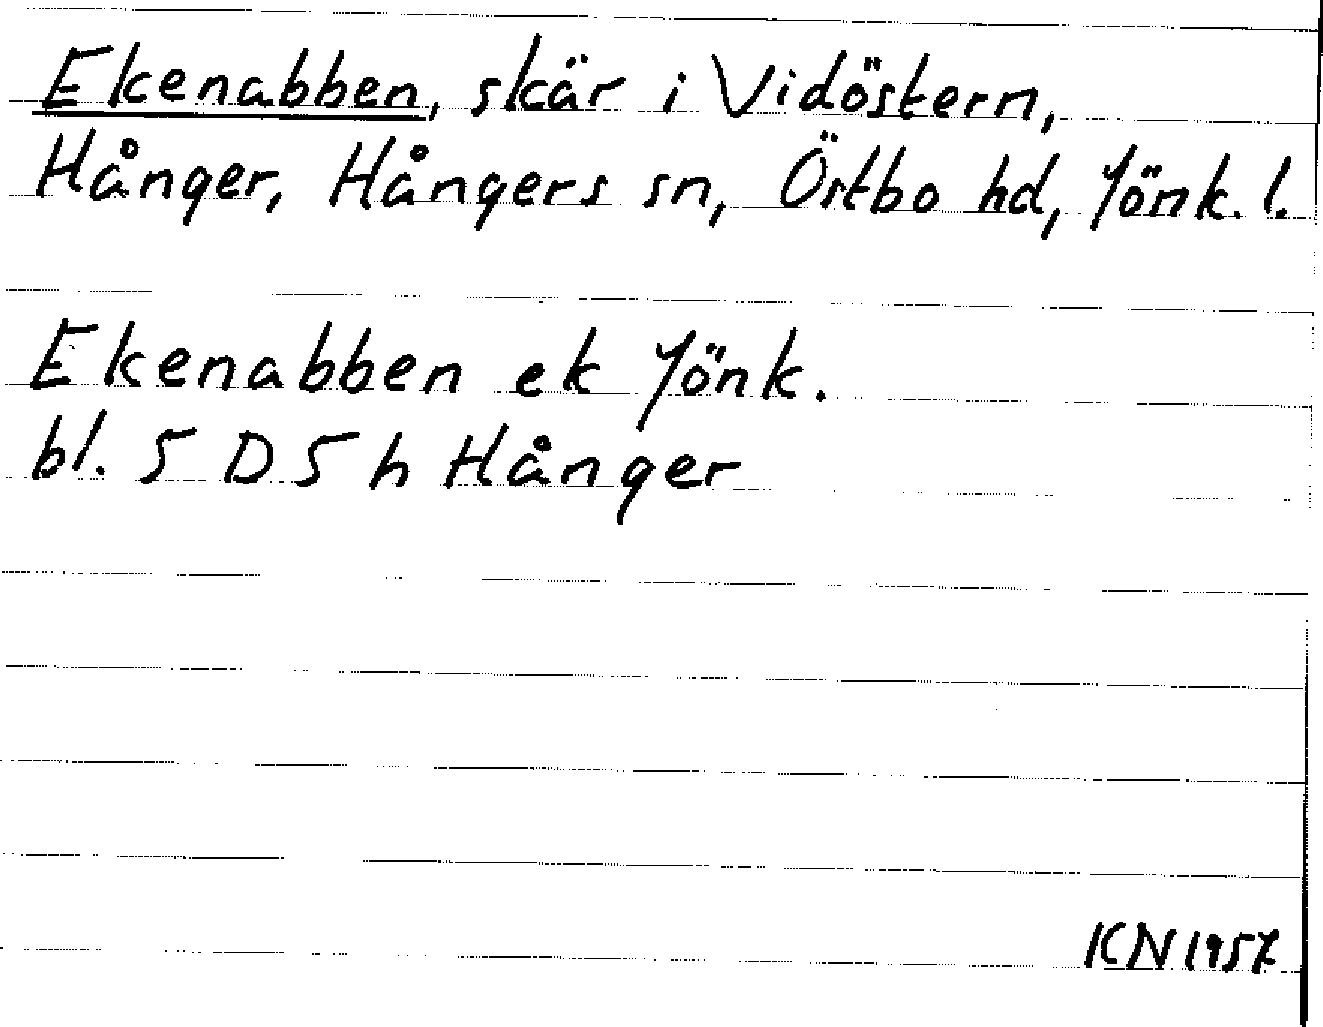 Ekenabben, skär i Vidöstern,
Hånger, Hångers sn, Östbo hd, Jönk. l.
Ekenabben ek Jönk.
bl. 5 D 5 h Hånger
KN 1957